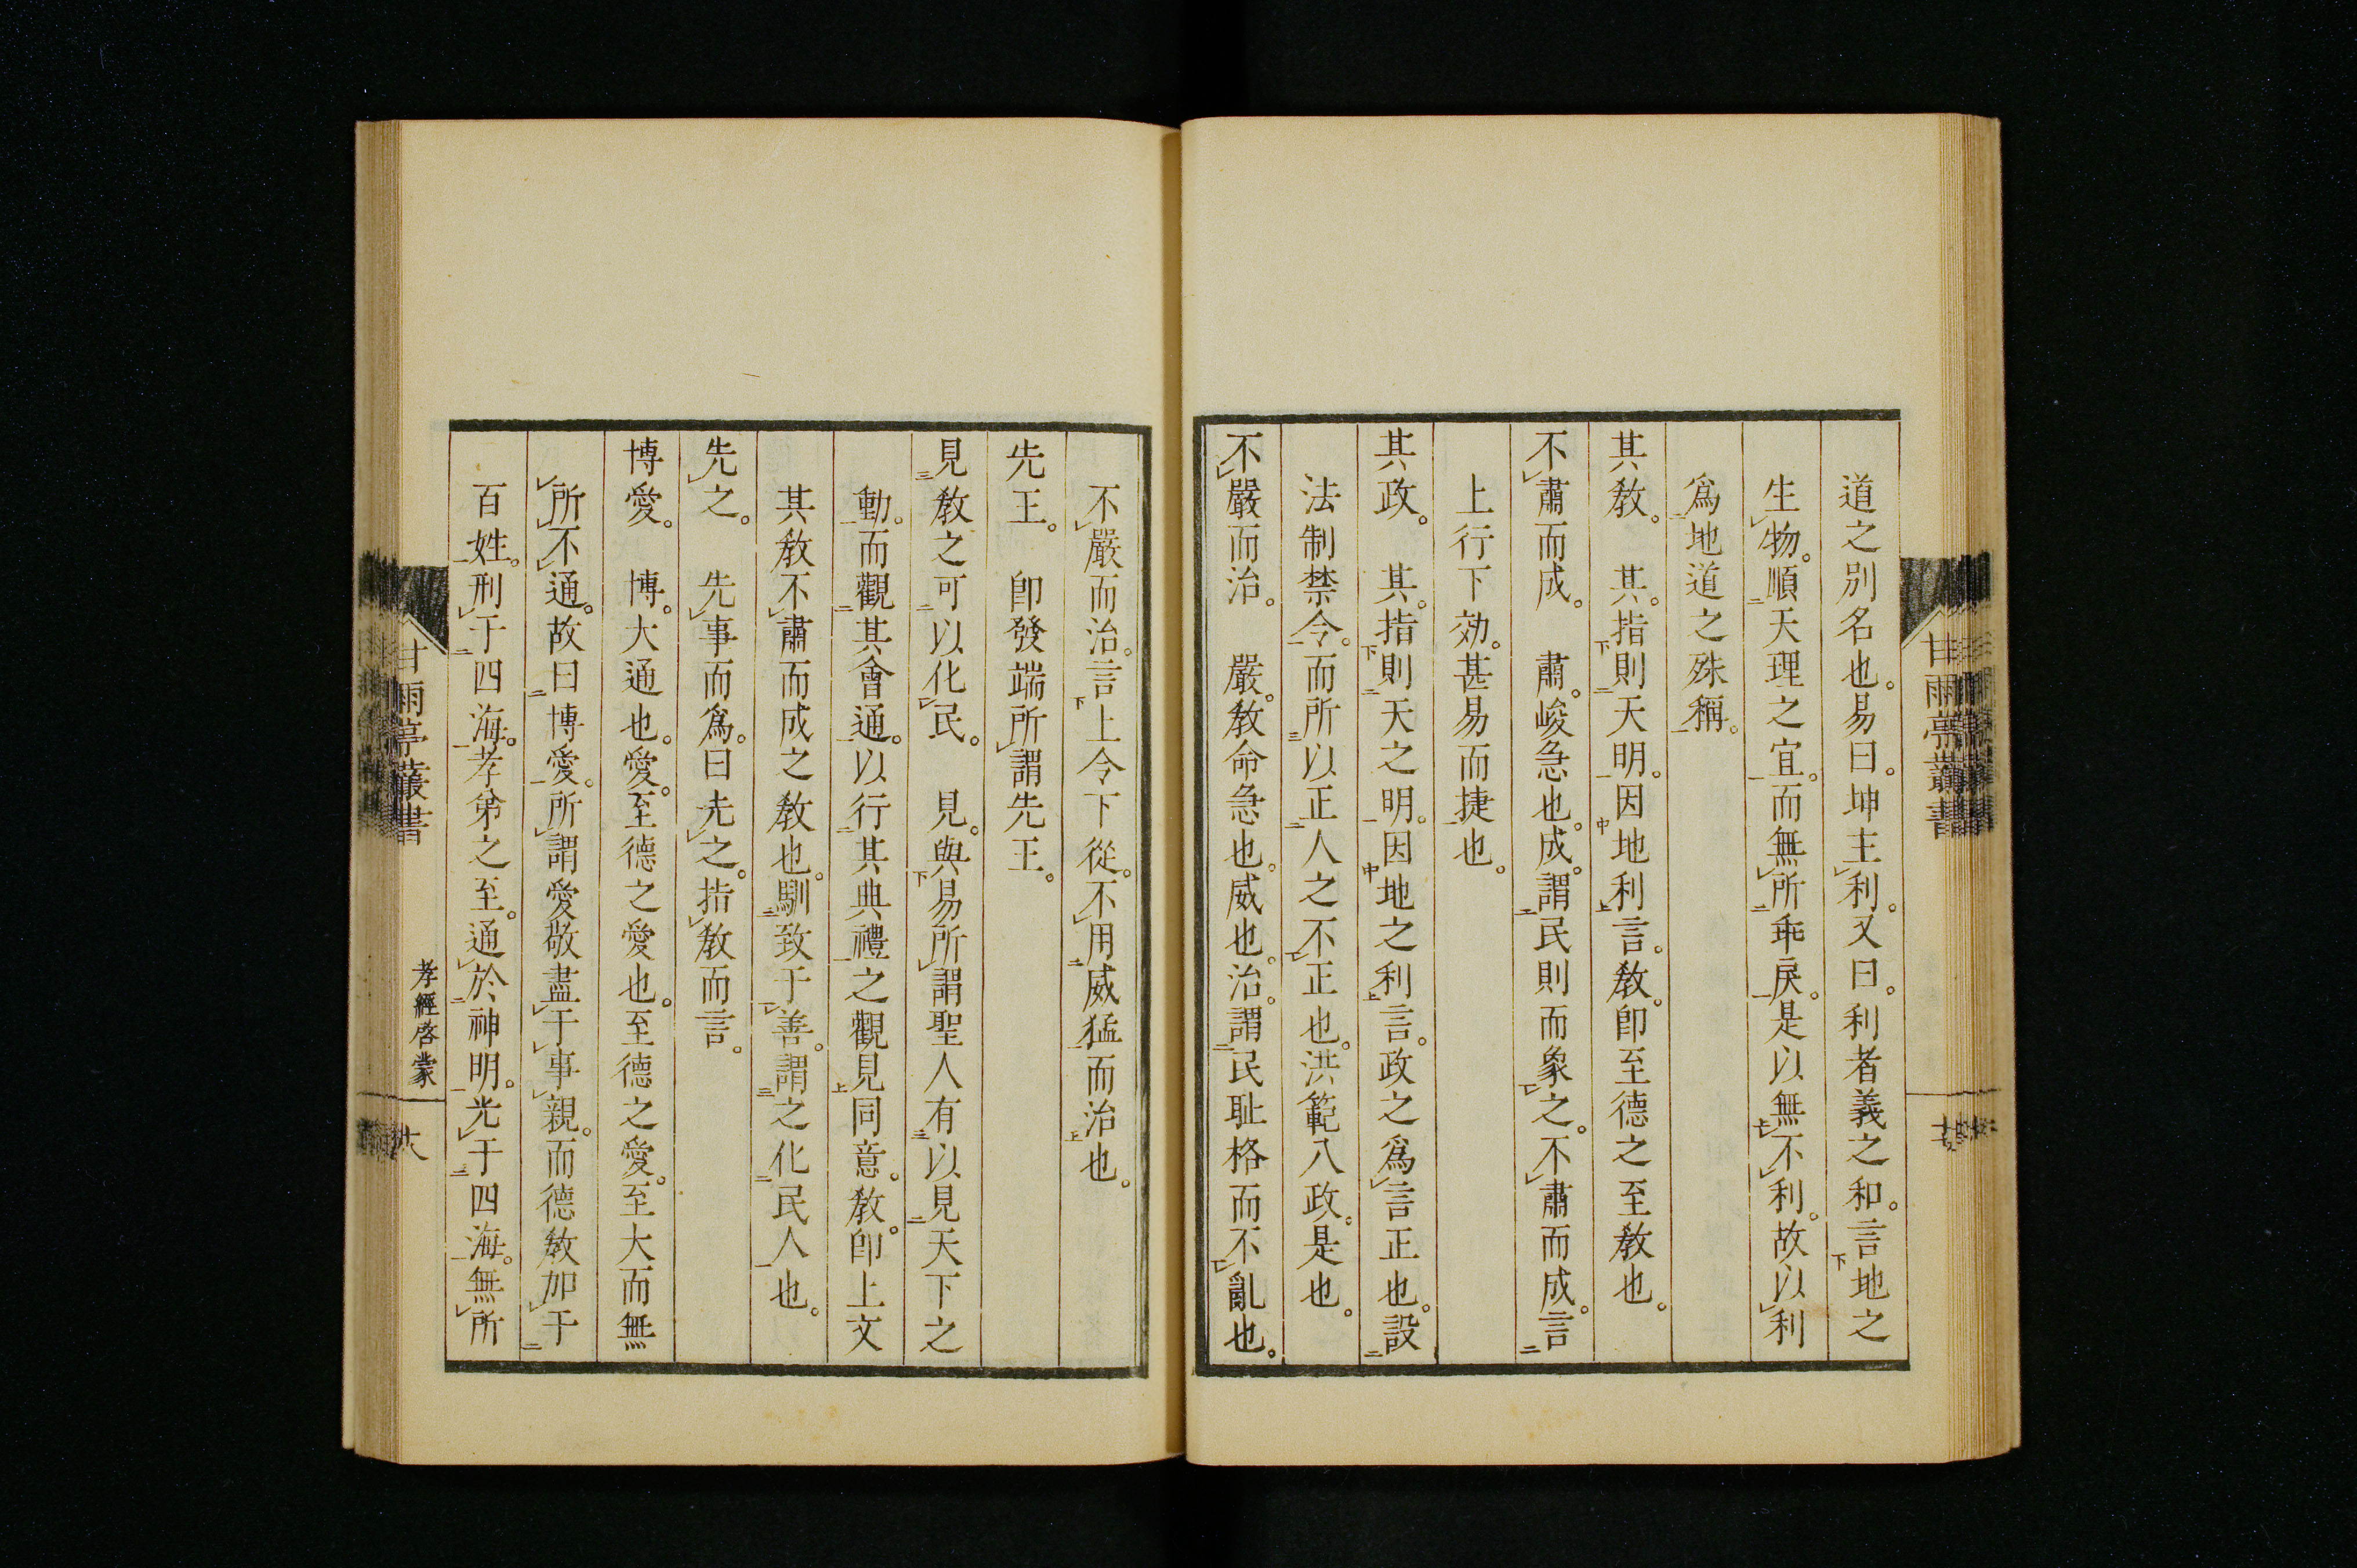 道之別名也。易曰。坤主利。又曰。利者義之和。言地之
生物。順天理之宜。而無所乖戾。是以無不利。故以利
爲地道之殊稱。
其敎。　其。指則天明。因地利言。敎。卽至德之至敎也。
不肅而成。　肅。峻急也。成。謂民則而象之。不肅而成。言
上行下効。甚易而捷也。
其政。　其。指則天之明。因地之利言。政之爲言正也。設
法制禁令。而所以正人之不正也。洪範八政。是也。
不嚴而治。　嚴。敎命急也。威也。治。謂民耻格而不亂也。
不嚴而治。言上令下從。不用威猛而治也。
先王。　卽發端所謂先王。
見敎之可以化民。　見。與易所謂聖人有以見天下之
動。而觀其會通。以行其典禮之觀見同意。敎。卽上文
其敎不肅而成之敎也。馴致于善。謂之化民人也。
先之。　先事而爲。曰先之。指敎而言。
博愛。　博。大通也。愛。至德之愛也。至德之愛。至大而無
所不通。故曰博愛。所謂愛敬盡于事親。而德敎加于
百姓。刑于四海。孝弟之至。通於神明。光于四海。無所
甘雨亭叢書
孝經啓蒙